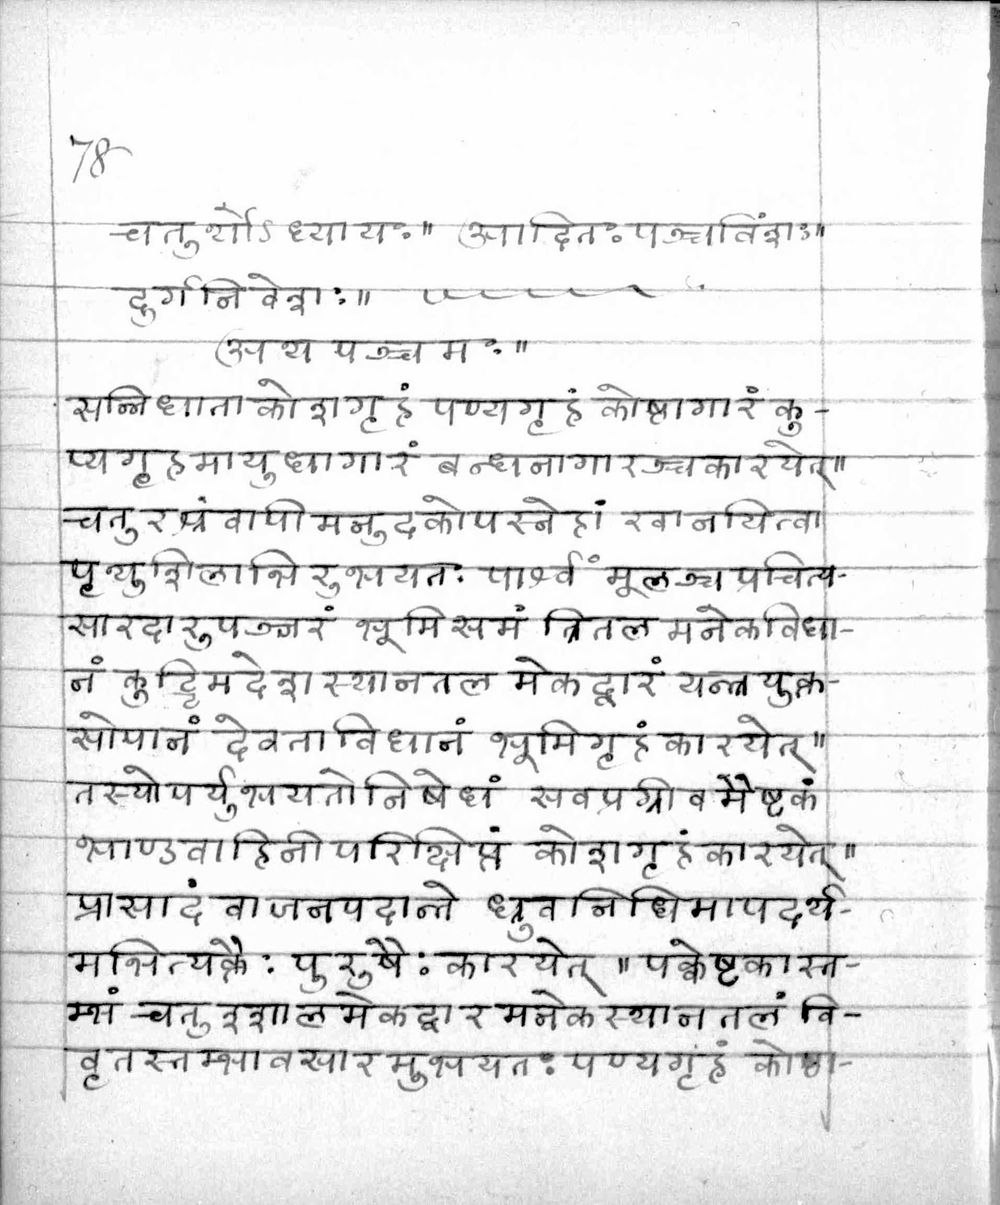 78
चतुर्थोऽध्यायः॥ आदितः पञ्चविंशः॥
दुर्गनिवेशः॥
अथ पञ्चमः॥
सन्निधाता कोशगृहं पण्यगृहं कोष्ठागारं कु-
प्यगृहमायुधागारं बन्धनागारञ्च कारयेत्॥
चतुरश्रं वापीमनुदकोपस्नेहां खानयित्वा
पृथुशिलाभिरुभयतः पार्श्वं मूलञ्च प्रचित्य-
सारदारुपञ्जरं भूमिसमं त्रितलमनेकविधा-
नं कुट्टिमदेशस्थानतलमेकद्वारं यन्त्रयुक्त-
सोपानं देवताविधानं भूमिगृहं कारयेत्॥
तस्योपर्युभयतोनिषेधं सवप्रग्रीवमैष्टकं
भाण्डवाहिनीपरिक्षिप्तं कोशगृहं कारयेत्॥
प्रासादं वा जनपदान्ते ध्रुवनिधिमापदर्थ-
मभित्यक्तैः पुरुषैः कारयेत्॥ पक्वेष्टकास्त-
म्भं चतुश्शालमेकद्वारमनेकस्थानतलं वि-
वृतस्तम्भावसारमुभयतः पण्यगृहं कोष्ठा-